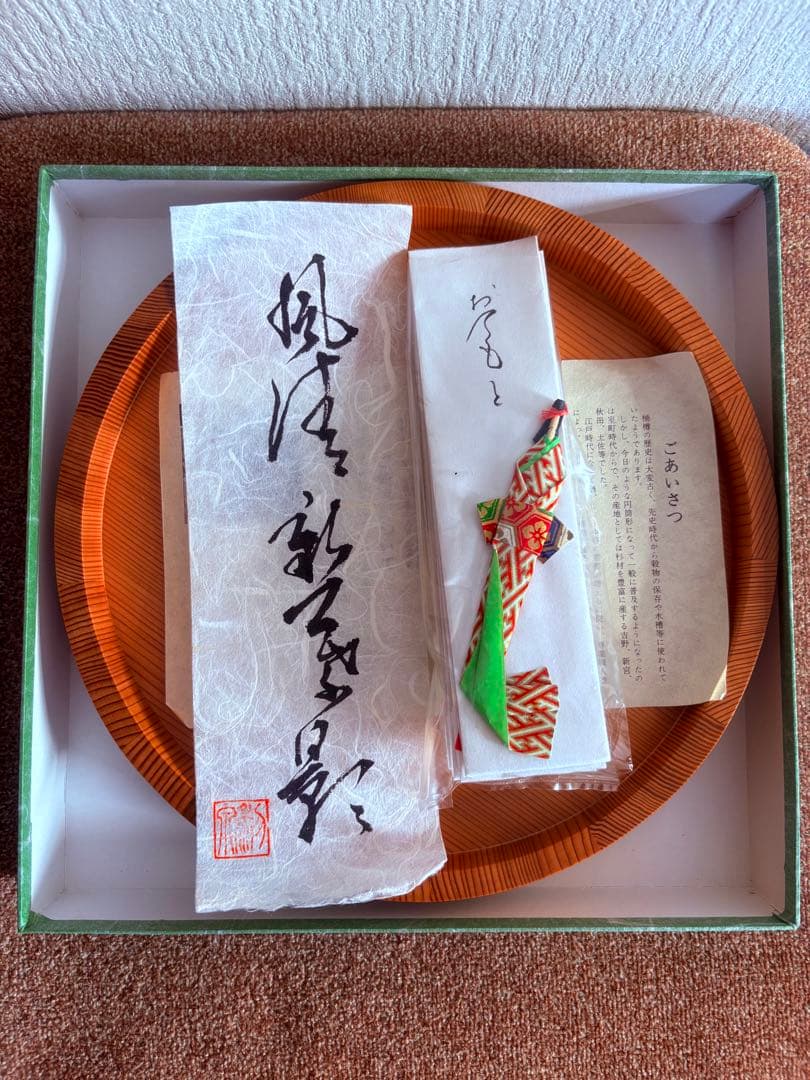 風清新葉影
おてもと
ごあいさつ
桶樽の歴史は大変古く、先史時代から穀物の保存や水槽等に使われて
いたようであります。
しかし、今日のような円筒形になって一般に普及するようになったの
は室町時代からで、その産地としては杉材を豊富に産する吉野、新宮、
秋田、土佐等でした。
江戸時代にな
によっ